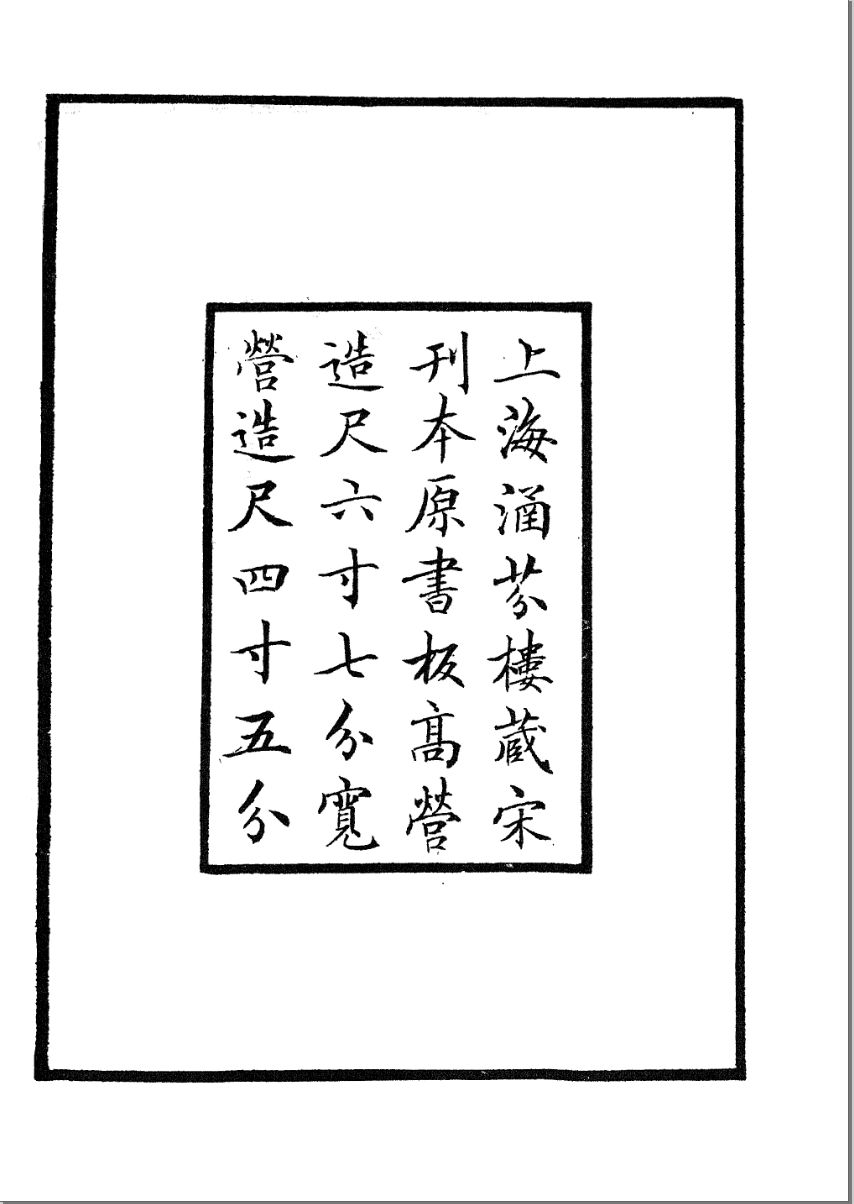 上海涵芬樓蔵宋
刊本原書板髙營
造尺六寸七分寛
營造尺四寸五分